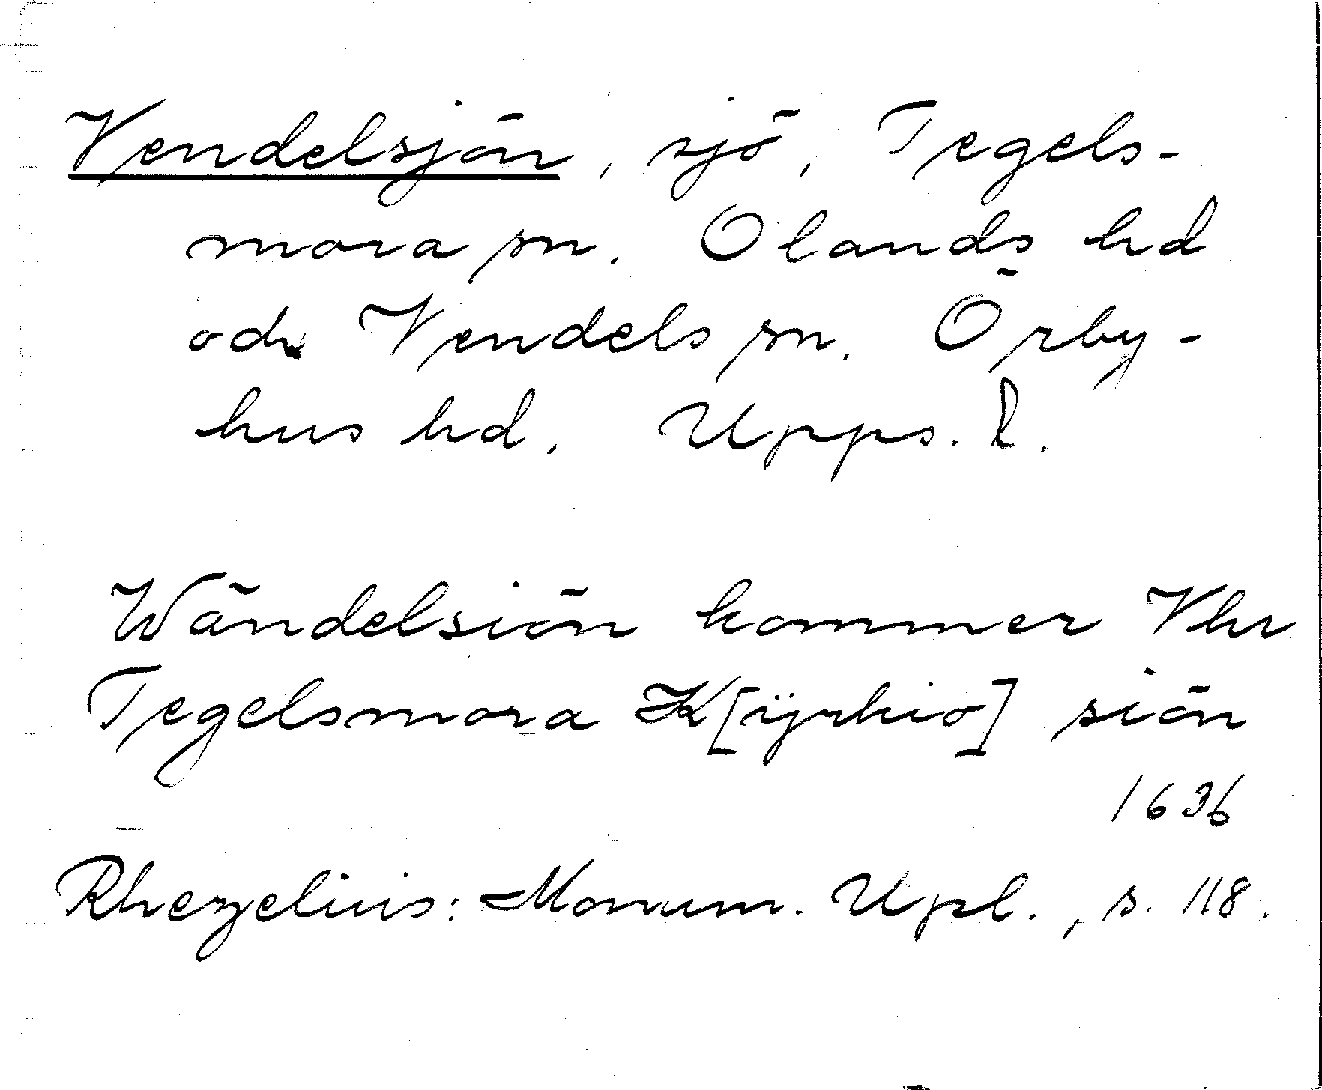 Vendelsjön, sjö, Tegels-
mora sn. Olands hd
och Vendels sn. Örby-
hus hd. Upps. l.
Wändelsiön kommer Vhr
Tegelsmora K[ÿrkio] siön
1636
Rhezelius: Monum. Upl., s. 118.